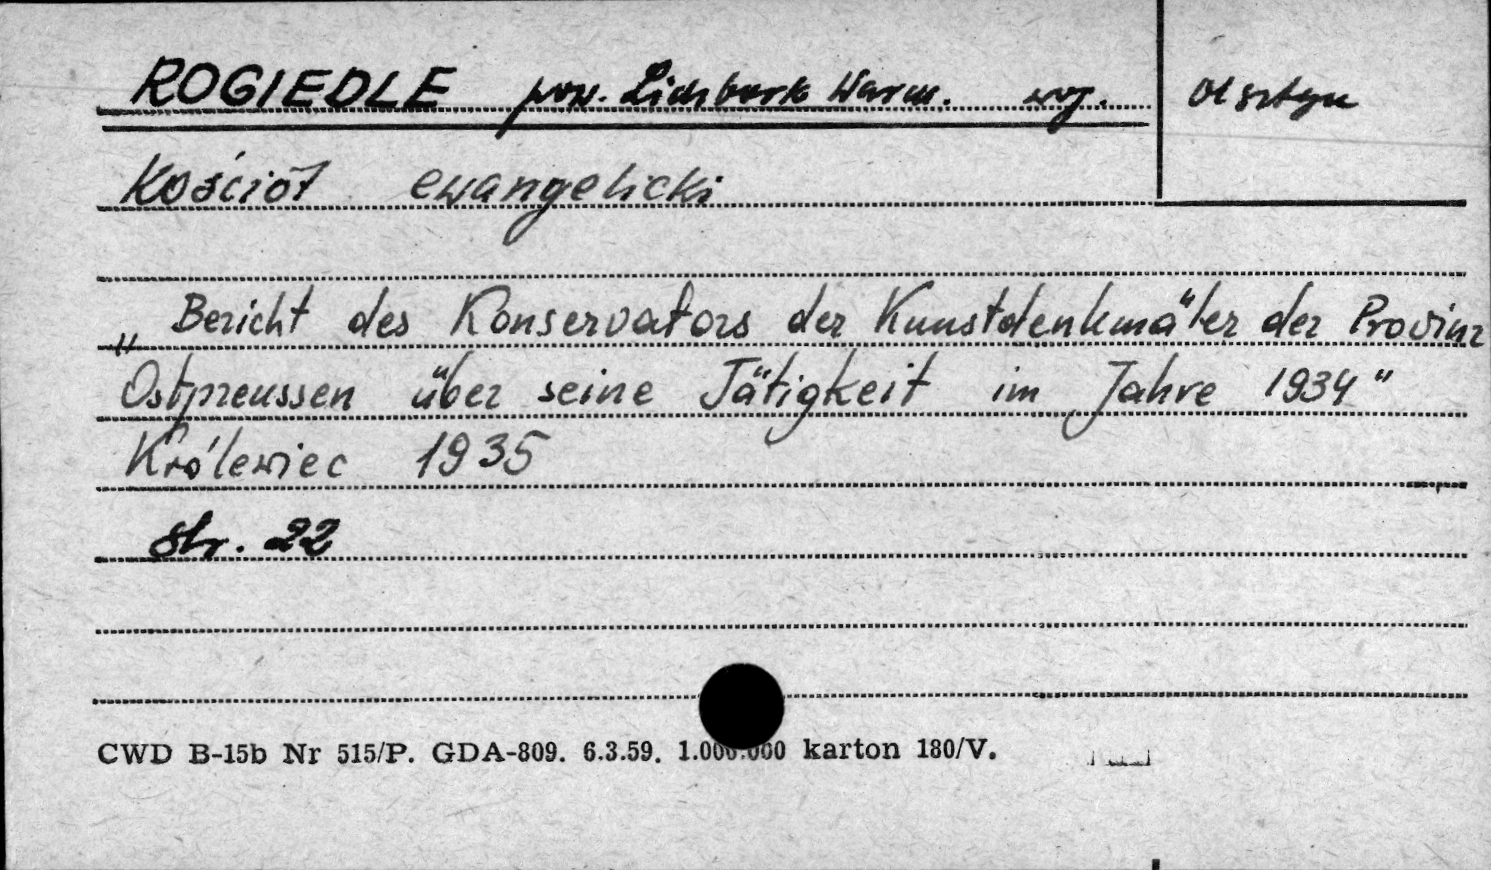 ROGIEDLE pow. Lidzbark Warm. woj. Olsztyn
Kościół ewangelicki
„Bericht des Konservators der Kunstdenkmäler der Provinz
Ostpreussen über seine Tätigkeit im Jahre 1934"
Królewiec 1935
str. 22
CWD B-15b Nr 515/P. GDA-809. 6.3.59. 1.000.000 karton 180/V.